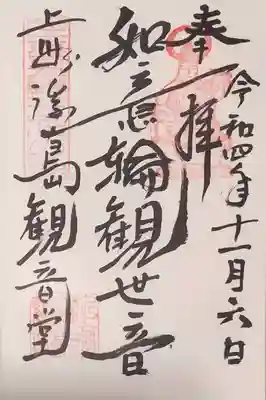 奉拝
令和四年十一月六日
如意輪観世音
上州 島観音堂